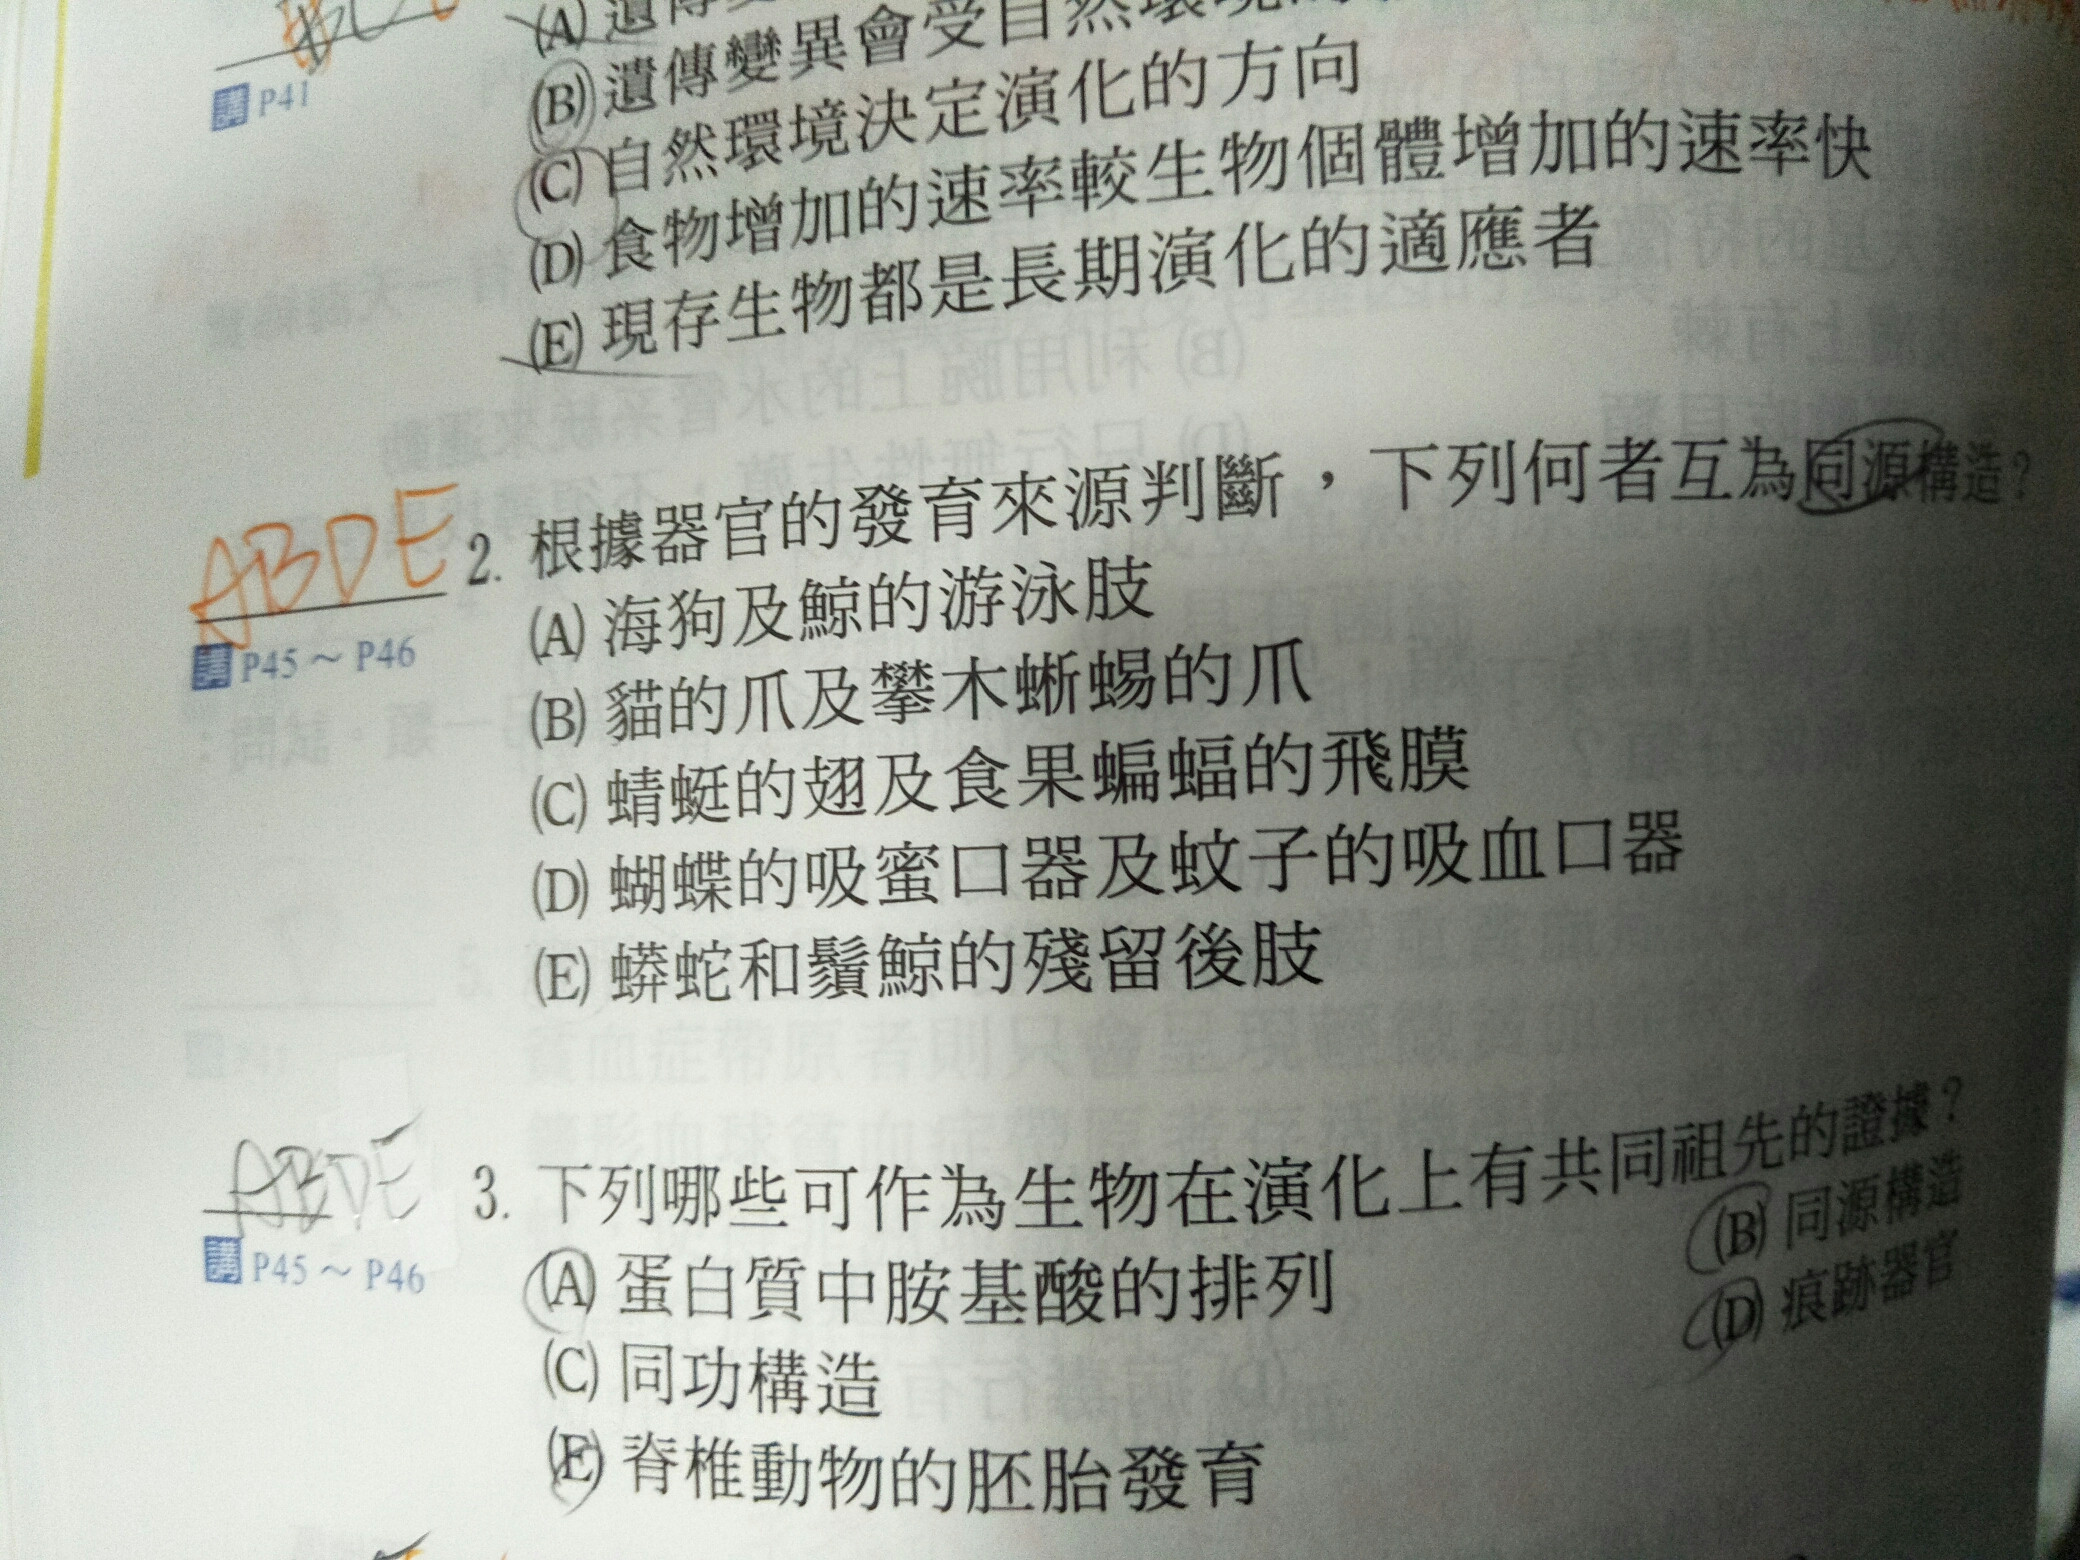 (A) 遺傳變
P41
(B) 遺傳變異會受自然環境
(C) 自然環境決定演化的方向
(D) 食物增加的速率較生物個體增加的速率快
(E) 現存生物都是長期演化的適應者
ABDE 2. 根據器官的發育來源判斷，下列何者互為同源構造？
(A) 海狗及鯨的游泳肢
講 P45～P46
(B) 貓的爪及攀木蜥蜴的爪
(C) 蜻蜓的翅及食果蝙蝠的飛膜
(D) 蝴蝶的吸蜜口器及蚊子的吸血口器
(E) 蟒蛇和鬚鯨的殘留後肢
ABDE 3. 下列哪些可作為生物在演化上有共同祖先的證據？
講 P45～P46
(A) 蛋白質中胺基酸的排列 (B) 同源構造
(C) 同功構造 (D) 痕跡器官
(E) 脊椎動物的胚胎發育